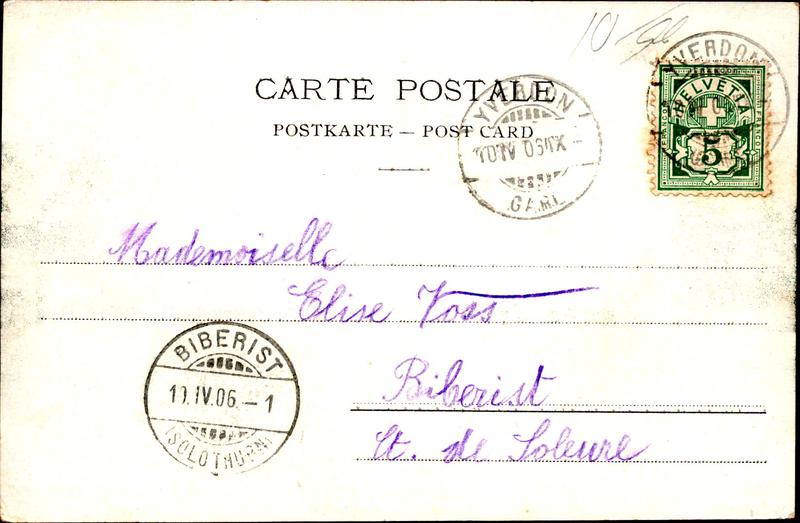 10
CARTE POSTALE
POSTKARTE – POST CARD
YVERDON
10 IV 06 IX –
GARE
YVERDON
HELVETIA
FRANCO
5
Mademoiselle
Elise Voss
BIBERIST
IV.06.–1
(SOLOTHURN)
Biberist
Ct. de Soleure